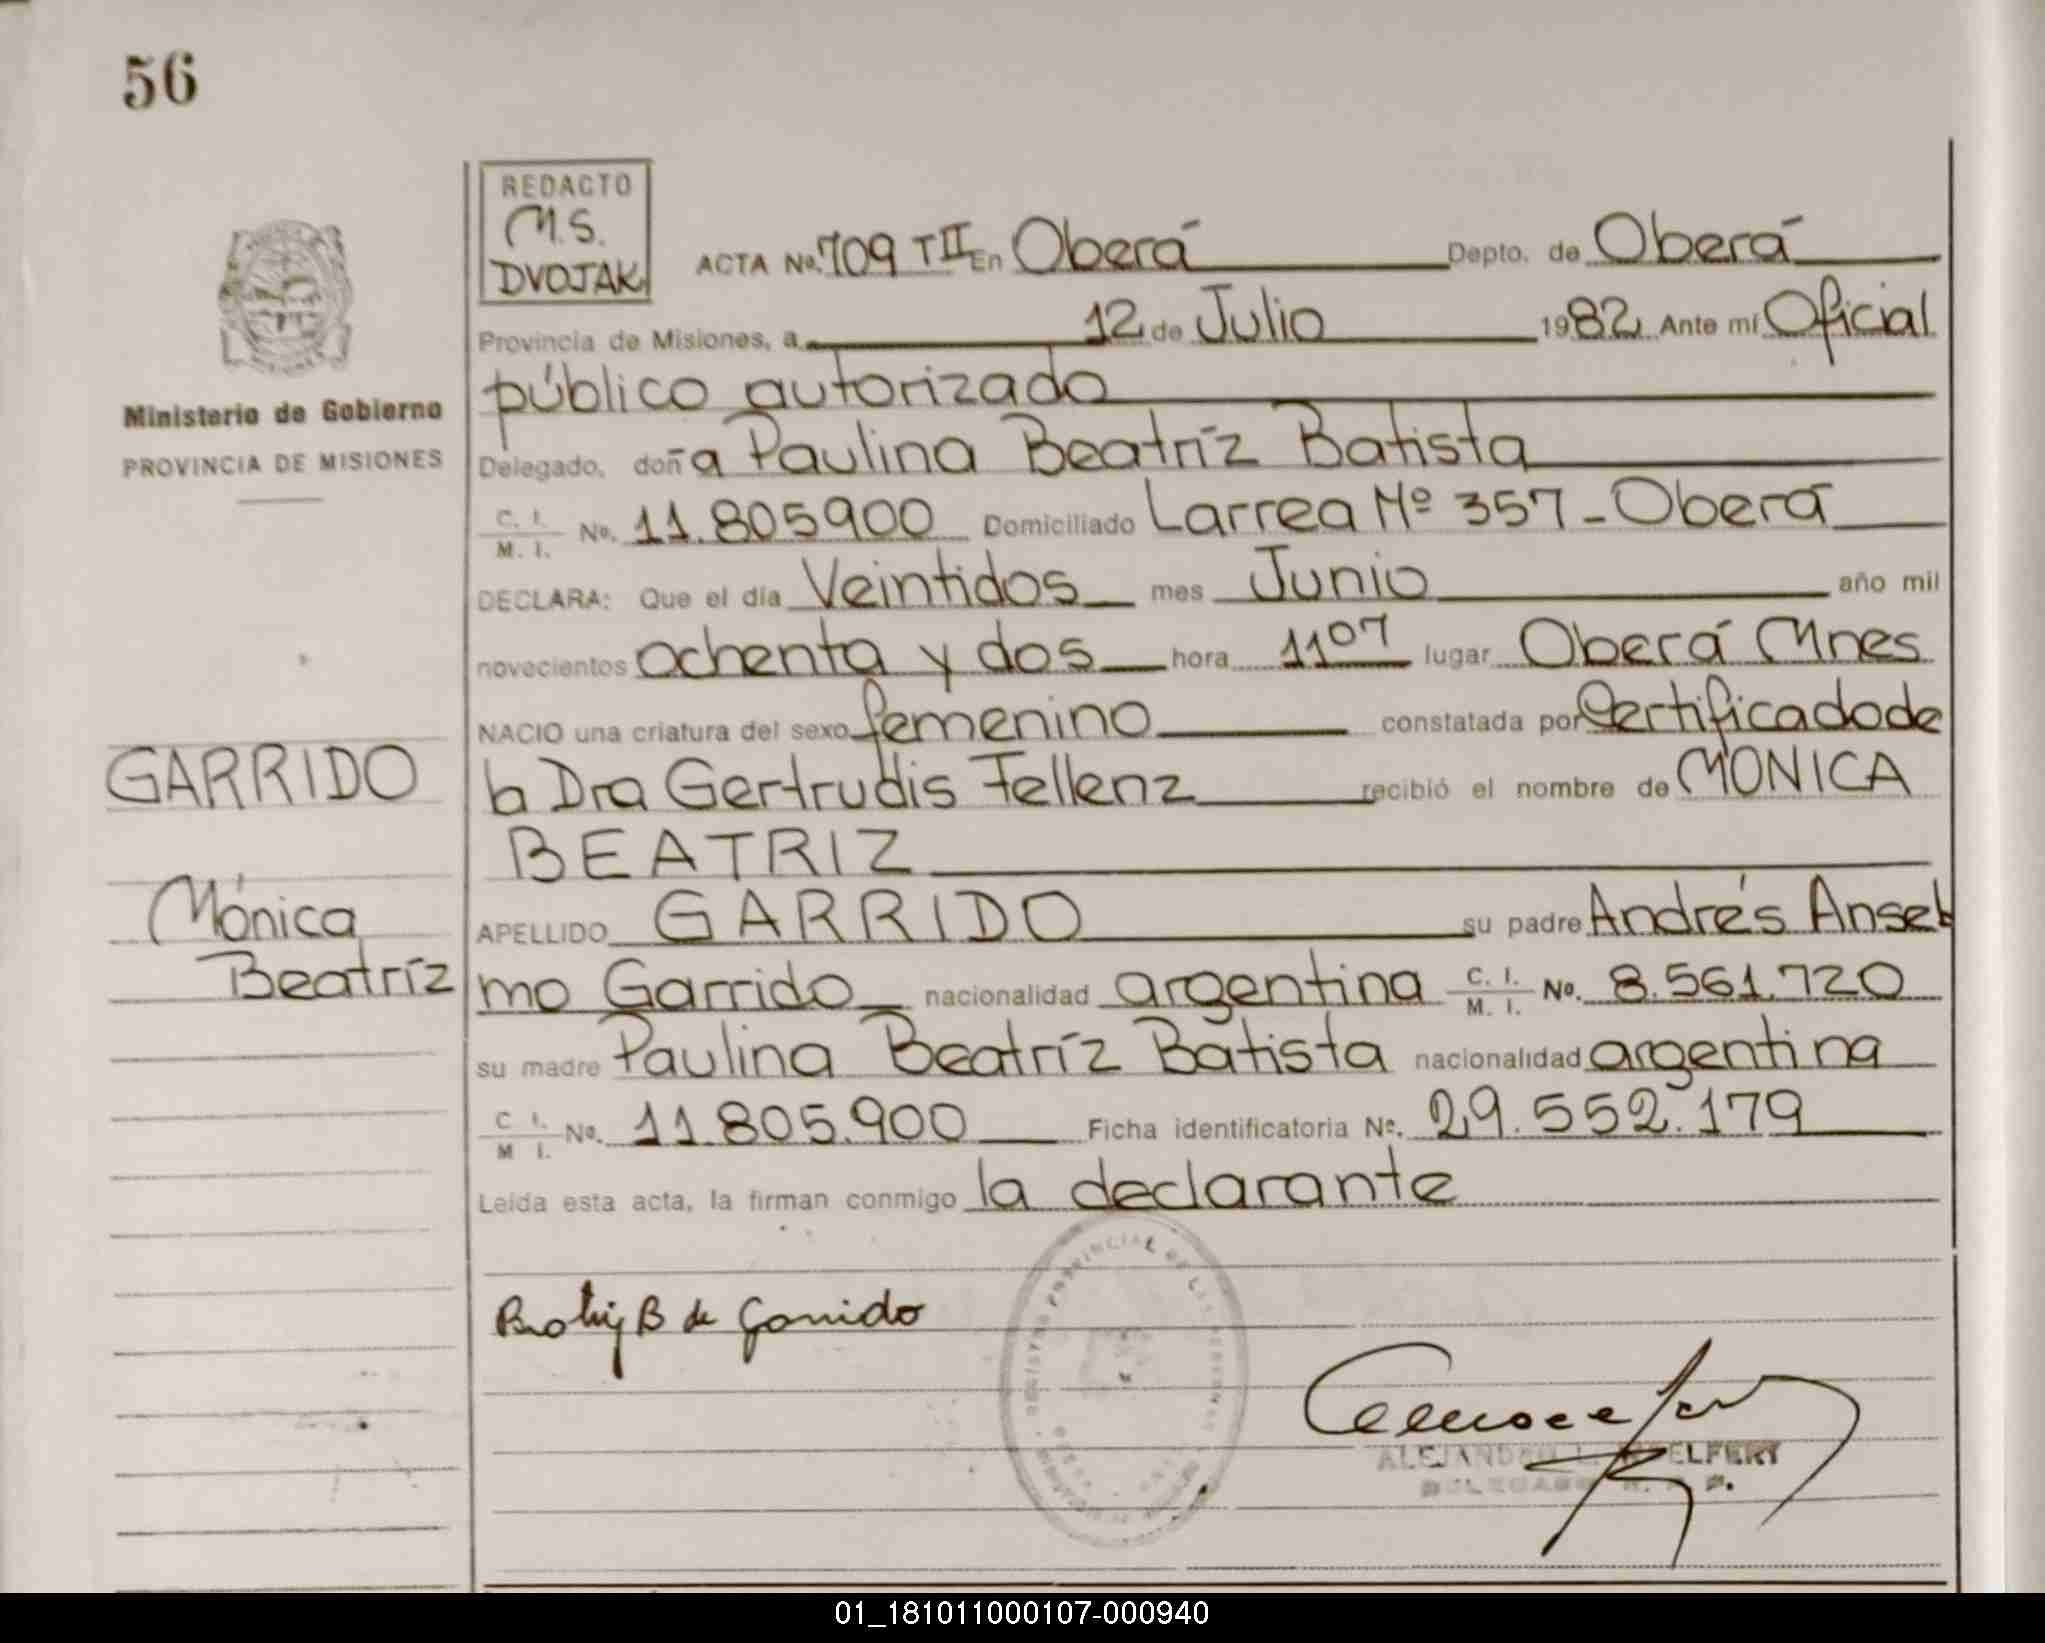 56
REDACTO
M.S.
DVOJAK
ACTA No. 709 TII En Oberá Depto. de Oberá
Provincia de Misiones, a 12 de Julio 1982 Ante mí Oficial
público autorizado
Ministerio de Gobierno
PROVINCIA DE MISIONES
Delegado, doña Paulina Beatríz Batista
C. I. / M. I. No. 11.805900 Domiciliado Larrea Nº 357 - Oberá
DECLARA: Que el día Veintidos mes Junio año mil
novecientos ochenta y dos hora 11 07 lugar Oberá Mnes
NACIO una criatura del sexo femenino constatada por Certificado de
la Dra Gertrudis Fellenz recibió el nombre de MÓNICA
BEATRIZ
GARRIDO
Mónica
Beatríz
APELLIDO GARRIDO su padre Andrés Ansel
mo Garrido nacionalidad argentina C. I. / M. I. No. 8.561.720
su madre Paulina Beatríz Batista nacionalidad argentina
C. I. / M. I. No. 11.805.900 Ficha identificatoria No. 29.552.179
Leída esta acta, la firman conmigo la declarante
B de Garrido
REGISTRO PROVINCIAL DE LAS PERSONAS
ALEJANDRO
DELEGADO
01_181011000107-000940